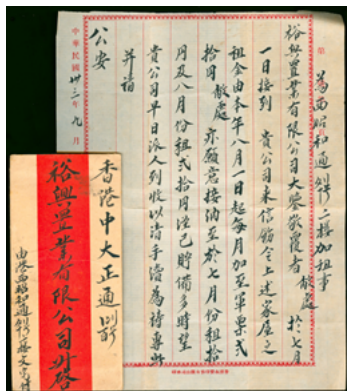 第
為西昭和通 二樓加租事
裕興置業有限公司大鑒敬覆者 敝處 於七月
一日接到 貴公司來信飭令上述家屋之
租金由本年八月一日起每月加至軍票弍
拾円 敝處 亦願意接納至於七月份租拾
円及八月份租弍拾円經已貯備多時望
貴公司早日派人到收以清手續為禱專此
并請
公安
中華民國卅三年九月
香港中大正通
裕興置業有限公司 啓
由港西昭和通 二樓